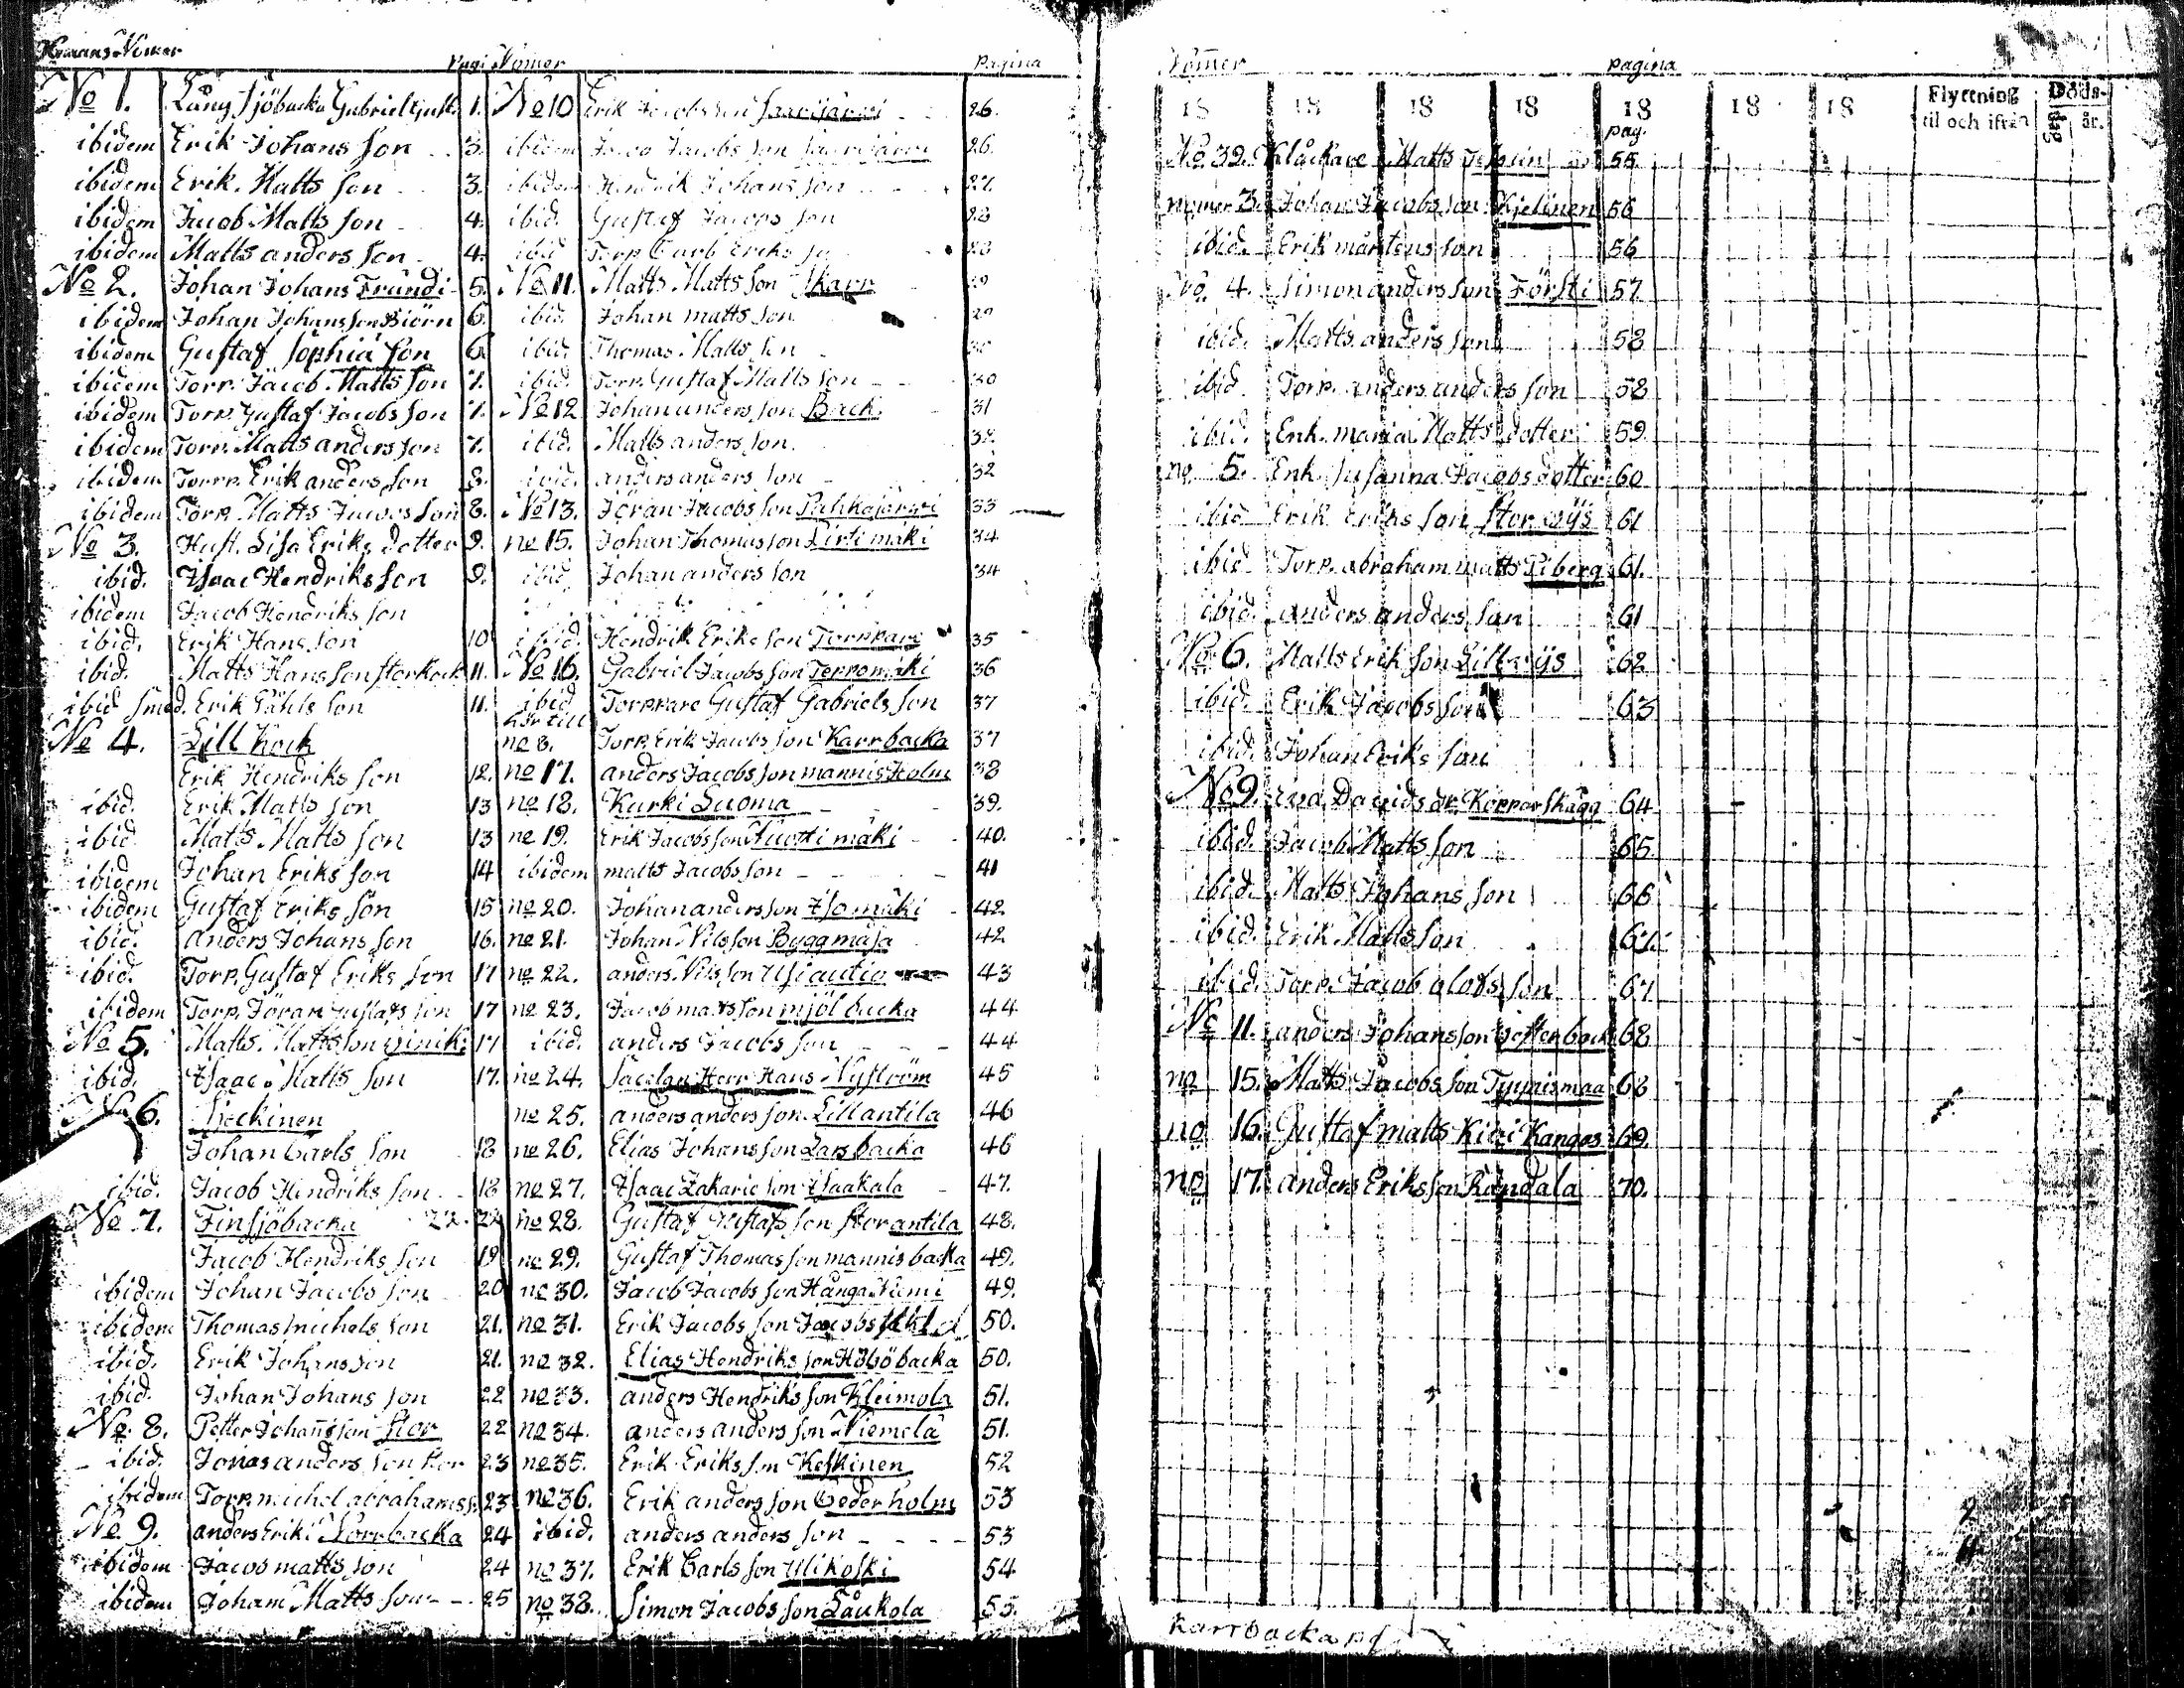 Hemans Nomer Pagi
No 1. Lång Sjöbacka Gabriel Gust. 1.
ibidem Erik Johans Son 3.
ibidem Erik Matts Son 3.
ibidem Jacob Matts Son 4.
ibidem Matts anders Son 4.
No 2. Johan Johans Frundi 5.
ibidem Johan Johans Son Biörn 6.
ibidem Gustaf Sophia Son 6
ibidem Torp. Jacob Matts Son 7.
ibidem Torp. Gustaf Jacobs Son 7.
ibidem Torp. Matts anders Son 7.
ibidem Torp. Erik anders Son 8.
ibidem Torp. Matts Jacobs Son 8.
No 3. Hust. Lisa Eriks dotter 9.
ibid. Isaac Hendriks Son 9.
ibidem Jacob Hendriks Son
ibid. Erik Hans Son 10
ibid. Matts Hans Son storkock 11.
ibid Smed. Erik Påhls Son 11.
No 4. Lill Kock
Erik Hendriks Son 12.
ibid. Erik Matts Son 13
ibid Matts Matts Son 13
ibidem Johan Eriks Son 14
ibidem Gustaf Eriks Son 15
ibid. anders Johans Son 16.
ibid. Torp. Gustaf Eriks Son 17
ibidem Torp. Jöran Gustafs Son 17
No 5. Matts Matts Son 17
ibid. Isaac Matts Son 17.
No 6.
Johan Carls Son 18
ibid. Jacob Hendriks Son 18
No 7. Finsjöbacka 22
Jacob Hendriks Son 19
ibidem Johan Jacobs Son 20
ibidem Thomas Michels Son 21.
ibid. Erik Johans Son 21.
ibid. Johan Johans Son 22
No 8. Petter Johans Son stor 22
ibid. Jonas anders Son 23
ibidem Torp. michel abrahams S. 23
No 9. anders Erik Korrbacka 24
ibidem Jacob matts Son 24
ibidem Joham Matts Son 25
Nomer Pagina
No 10 Erik Jacobs Son Saarijärwi 26.
ibidem Jacob Jacobs Son Saarijärwi 26.
ibidem Hendrik Johans Son 27.
ibid. Gustaf Jacobs Son 28
ibid Torp. Jacob Eriks 28
No 11. Matts Matts Son Skarp 29
ibid. Johan matts Son 29
ibid. Thomas Matts Son 30
ibid. Torp. Gustaf Matts Son 30
No 12 Johan anders Son Back 31
ibid. Matts anders Son 32
ibid. anders anders Son 32
No 13. Jöran Jacobs Son Pahkajärwi 33
no 15. Johan Thomas Son Pirtimäki 34
ibid Johan anders Son 34
ibid. Hendrik Eriks Son Torppare 35
No 16. Gabriel Jacobs Son Terromäki 36
ibid Torppare Gustaf Gabriels Son 37
hör till
no 8. Torp. Erik Jacobs Son Karrbacka 37
no 17. anders Jacobs Son mannis Holm 38
no 18. Kurki Luoma 39.
no 19. Erik Jacobs Son Nuottimäki 40.
ibidem matts Jacobs Son 41
no 20. Johan anders Son Isomäki 42
no 21. Johan Nils Son Byggmäsa 42
no 22. anders Nils Son Usiautio 43
no 23. Jacob matts Son mjölbacka 44
ibid. anders Jacobs Son 44
no 24. Sacelan Herr Hans Nyström 45
no 25. anders anders Son Lillantila 46
no 26. Elias Johans Son Larsbacka 46
no 27. Isaac Zakarie Son Isaakala 47.
no 28. Gustaf Gustafs Son storantila 48.
no 29. Gustaf Thomas Son mannisbacka 49.
no 30. Jacob Jacobs Son Hånga Niemi 49.
no 31. Erik Jacobs Son 50.
no 32. Elias Hendriks Son Högbacka 50.
no 33. anders Hendriks Son Kleimola 51.
no 34. anders anders Son Niemelä 51.
no 35. Erik Eriks Son Keskinen 52
no 36. Erik anders Son Cederholm 53
ibid. anders anders Son 53
no 37. Erik Carls Son Ulikoski 54
no 38. Simon Jacobs Son Laukola 55.
Nomer pagina
18 18 18 18 18 18 18 Flyttning til och ifrån Döds- dag år.
pag.
No 39. Klåckare Matts 55
nummer 3. Johan Jacobs Son Kjelinen 56
ibid. Erik mårtens son 56
No. 4. Simon anders Son FörSti 57
ibid. Matts anders Son 58
ibid Torp. anders anders Son 58
ibid. Enk. maria Matts dotter 59
no 5. Enk. Susanna Jacobs dotter 60
ibid Erik Eriks Son storwijs 61
ibid Torp. abraham matts Piberg 61.
ibid. anders anders Son 61
No 6. Matts Erik Son Lillwijs 62
ibid. Erik Jacobs Son 63
ibid. Johan Eriks Son
No 9. Eva Davids dr Kopparskägg 64
ibid. Jacob Matts Son 65
ibid. Matts Johans Son 66
ibid. Erik Matts Son 67
ibid. Torp. Jacob olofs Son 67
No 11. anders Johans Son 68
no 15. Matts Jacobs Son Tyynismaa 68
no 16. Gustaf matts Kivi Kangas 69.
no 17. anders Eriks Son Randala 70.
Karrbacka